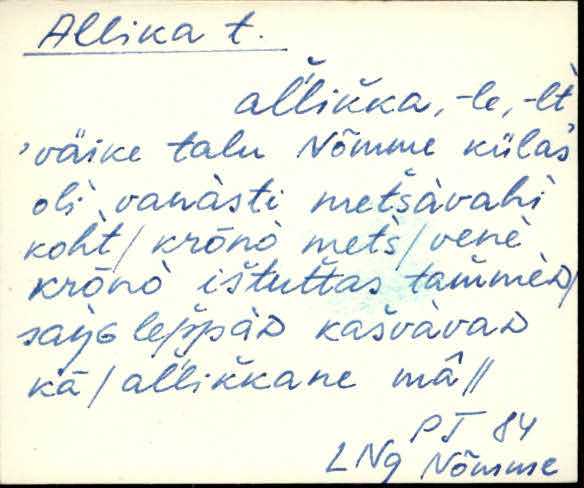 Allika t.
al̆likka, -le, -lt
'väike talu Nõmme külas
olì̬ vanàsti metšàvahì
koht / krōnò metš / venè
krōnò ištuttas tam̆mèᴅ /
leppàᴅ kašvàvaᴅ
kā / al̆likkane mâ //
PT 84
LNg Nõmme